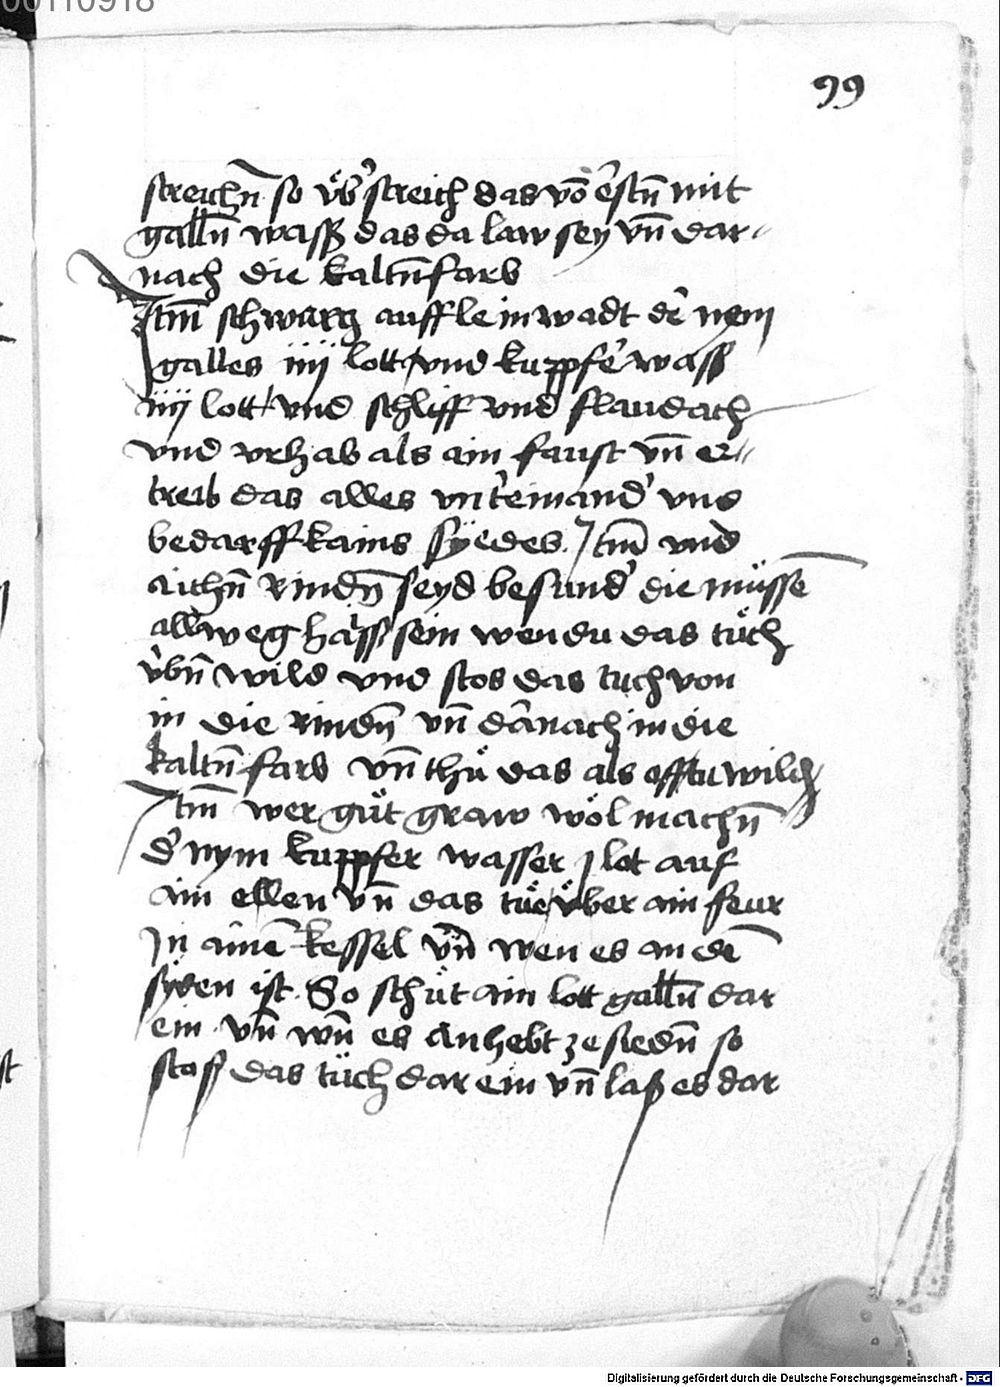 00110918
99
streichn̄ so v̈b̕streich das vō ersten̄ mit
galln̄ wasser das da law sey vn̄ dar=
nach die kaltn̄ farb
Jtm̄ schwarcz auff leinwadt der nem
galles iiij lott vnd kuppfer wass
iiij lott vnd schliff vnd
vnd vrhab als ain faust vn̄ er=
treib das alles vnt̕einand̕ vnd
bedarff kains syedes. Jtm̄ vnd
aichn̄ Rindn̄ seyd besund̕ die müssē
allweg haiss sein wen du das tüch
v̕bn̄ wild vnd stos das tuch von
in die rindn̄ vn̄ darnach in die
kaltn̄ farb vn̄ thü das als offt tu wild
Jtm̄ wer güt graw wöl machn̄
d̕ nym kuppfer wasser j lot auf
ain ellen vn̄ das tüe v̈ber ain feur
Jn ainē kessel vn̄ wen es an dē
syden ist. So schüt ain lott galln̄ dar
ein. vn̄ wn̄ es anhebt ze siedn̄ so
stoß das tüch dar ein vn̄ laß es dar
Digitalisierung gefördert durch die Deutsche Forschungsgemeinschaft - DFG